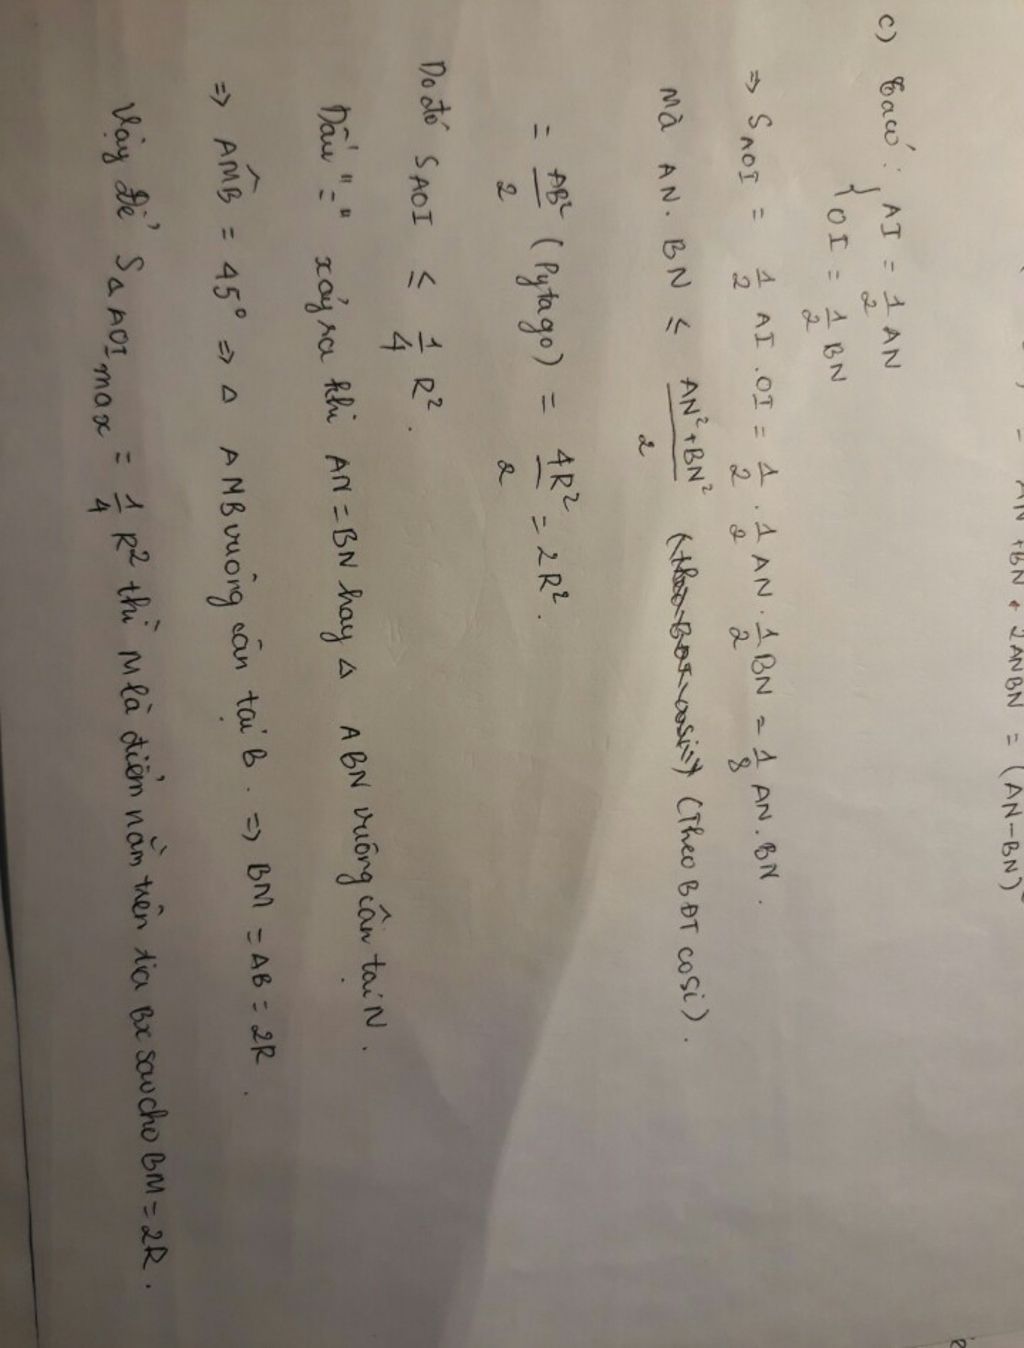 - AN + BN + 2ANBN = (AN-BN)
c) Ta có: { AI = 1/2 AN
OI = 1/2 BN
=> SAOI = 1/2 AI.OI = 1/2 . 1/2 AN . 1/2 BN = 1/8 AN.BN.
Mà AN.BN ≤ (AN²+BN²)/2 (Theo BĐT cosi).
= AB²/2 (Pytago) = 4R²/2 = 2R².
Do đó SAOI ≤ 1/4 R².
Dấu "=" xảy ra khi AN = BN hay Δ ABN vuông cân tại N.
=> AM̂B = 45° => Δ AMB vuông cân tại B. => BM = AB = 2R.
Vậy để SΔAOI max = 1/4 R² thì M là điểm nằm trên tia Bx sao cho BM = 2R.